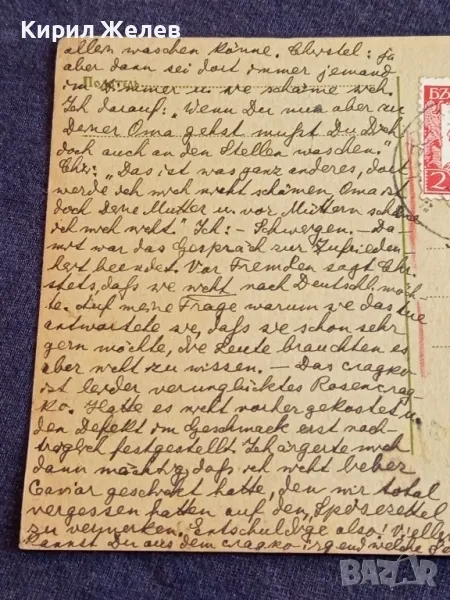 Кирил Желев
allem waschen könne. Christel: Ja
aber dann sei dort immer jemand
im Zimmer u. sie schäme sich.
Податель
Ich darauf: "Wenn Du nun aber zu
Deiner Oma gehst mußt Du Dich
doch auch an den Stellen waschen."
Chr.: "Das ist was ganz anderes, dort
werde ich mich nicht schämen, Oma ist
doch Deine Mutter u. vor Müttern schäme
ich mich nicht." Ich: - Schweigen. - Da-
mit war das Gespräch zur Zufrieden-
heit beendet. Vor Fremden sagt Chri-
stel, daß sie nicht nach Deutschl. möch-
te. Auf meine Frage warum sie das tue
antwortete sie, daß sie schon sehr
gern möchte, die Leute brauchten es
aber nicht zu wissen. — Das сладко
ist leider verunglücktes Rosenсла-
дко. Hatte es nicht vorher gekostet u.
den Defekt im Geschmack erst nach-
träglich festgestellt. Ich ärgerte mich
dann mächtig, daß ich nicht lieber
Caviar geschickt hatte, den wir total
vergessen hatten auf den "Speisezettel
zu vermerken. Entschuldige also! Vielleicht
kannst Du aus dem сладко irgendwelche
БЪ
2
BAZAR